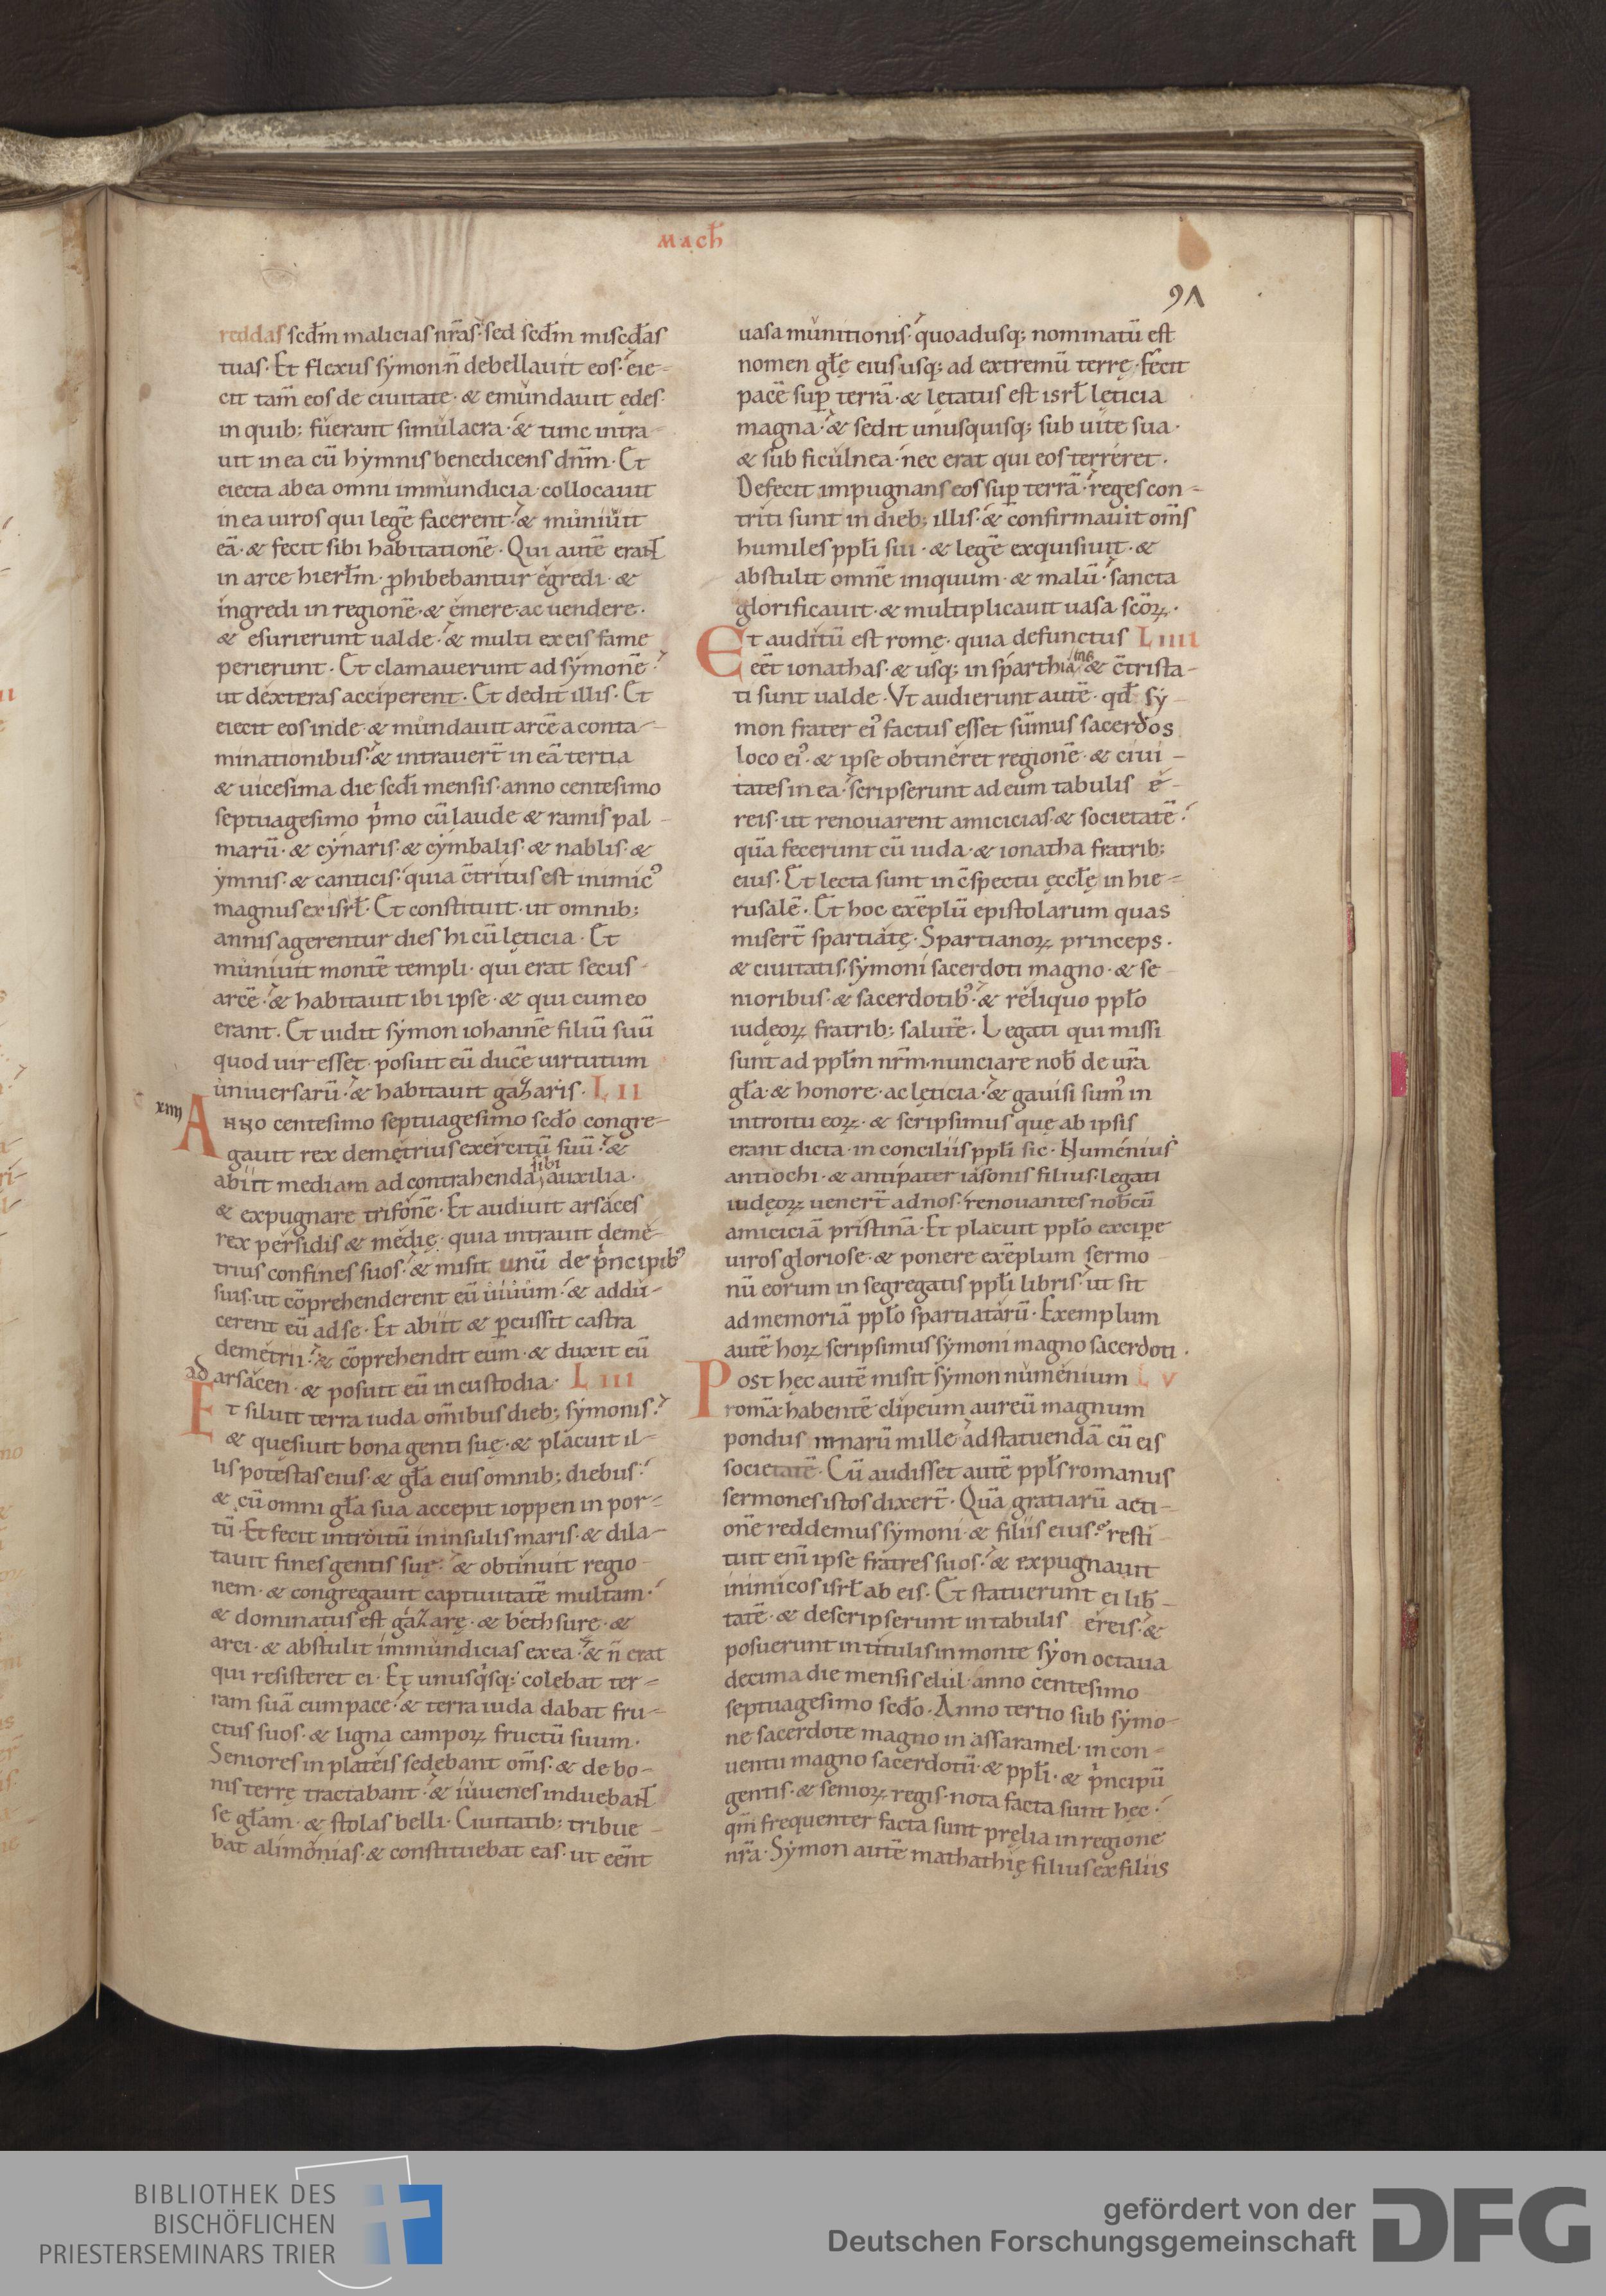 mach
97
reddas scdm malicias nr̄as· sed scdm misc̄das
tuas· Et flexus symon n̄ debellauit eos· eie-
cit tam̄ eos de ciuitate· & emundauit ędes·
in quib; fuerant simulacra· & tunc intra-
uit in ea cū hymnis benedicens dn̄m· Et
eiecta ab ea omni immundicia· collocauit
in ea uiros qui legē facerent· & muniuit
eā· & fecit sibi habitationē· Qui autē erant
in arce hierłm· ꝓhibebantur egredi· &
ingredi in regionē· & emere· ac uendere·
& esurierunt ualde· & multi ex eis fame
perierunt· Et clamauerunt ad symonē·
ut dexteras acciperent· Et dedit illis· Et
eiecit eos inde· & mundauit arcē a conta-
minationibus· & intrauer̄t in eā tertia
& uicesima die scdi mensis· anno centesimo
septuagesimo p'mo cū laude & ramis pal-
marū· & cynaris· & cymbalis· & nablis· &
ymnis· & canticis· quia c̄tritus est inimic'
magnus ex isrł· Et constituit· ut omnib;
annis agerentur dies hi cū lęticia· Et
muniuit montē templi· qui erat secus
arcē· & habitauit ibi ipse· & qui cum eo
erant· Et uidit symon iohannē filiū suū
quod uir esset· posuit eū ducē uirtutum
uniuersarū· & habitauit gazaris· LII
xiiij
Anno centesimo septuagesimo scdo congre-
gauit rex demetrius exercitū suū· &
abiit mediam ad contrahenda sibi auxilia·
& expugnare trifonē· Et audiuit arsaces
rex persidis & medię· quia intrauit deme-
trius confines suos· & misit unū de p'ncipib'
suis· ut cōprehenderent eū uiuum· & addu-
cerent eū ad se· Et abiit & ꝑcussit castra
demetrii· & cōprehendit eum· & duxit eū
ad arsacen· & posuit eū in custodia· LIII
Et siluit terra iuda om̄ibus dieb; symonis·
& quesiuit bona genti suę· & placuit il-
lis potestas eius· & gła eius omnib; diebus·
& cū omni gła sua accepit ioppen in por-
tū· Et fecit introitū in insulis maris· & dila-
tauit fines gentis suę· & obtinuit regio-
nem· & congregauit captiuitatē multam·
& dominatus est gazarę· & bethsure· &
arci· & abstulit immundicias ex ea· & n̄ erat
qui resisteret ei· Et unusq'sq; colebat ter-
ram suā cum pace· & terra iuda dabat fru-
ctus suos· & ligna campoꝝ fructū suum·
Seniores in plateis sedebant om̄s· & de bo-
nis terrę tractabant· & iuuenes induebant
se głam· & stolas belli· Ciuitatib; tribue-
bat alimonias· & constituebat eas· ut eēnt
uasa munitionis· quoadusq; nominatū est
nomen głę eius usq; ad extremū terrę· Fecit
pacē suꝑ terrā· & lętatus est isrł lęticia
magna· & sedit unusquisq; sub uite sua·
& sub ficulnea· nec erat qui eos terreret·
Defecit impugnans eos suꝑ terrā· reges con-
triti sunt in dieb; illis· & confirmauit om̄s
humiles ppłi sui· & legē exquisiuit· &
abstulit omnē iniquum· & malū· sancta
glorificauit· & multiplicauit uasa scōꝝ·
Et auditū est romę· quia defunctus LIIII
eēt ionathas· & usq; in sparthia & c̄trista-
ti sunt ualde· Vt audierunt autē· qd sy-
mon frater ei' factus esset sum̄us sacerdos
loco ei'· & ipse obtineret regionē· & ciui-
tates in ea· scripserunt ad eum tabulis e-
reis· ut renouarent amicicias· & societatē·
quā fecerunt cū iuda· & ionatha fratrib;
eius· Et lecta sunt in c̄spectu ęccłę in hie-
rusalē· Et hoc exēplū epistolarum quas
miser̄t spartiatę· Spartianoꝝ princeps·
& ciuitatis· symoni sacerdoti magno· & se-
nioribus· & sacerdotib'· & reliquo ppło
iudęoꝝ fratrib; salutē· Legati qui missi
sunt ad ppłm nr̄m· nunciare nob̄ de ur̄a
gła· & honore· ac lęticia· & gauisi sum' in
introitu eoꝝ· & scripsimus quę ab ipsis
erant dicta· in conciliis ppłi sic· Numenius
antiochi· & antipater iasonis filius· legati
iudęoꝝ uener̄t ad nos· renouantes nob̄cū
amiciciā pristinā· Et placuit ppło exciꝑe
uiros gloriose· & ponere exēplum sermo-
nū eorum in segregatis ppłi libris· ut sit
ad memoriā ppło spartiatarū· Exemplum
autē hoꝝ scripsimus symoni magno sacerdoti·
Post hęc autē misit symon numenium LV
romā habentē clipeum aureū magnum
pondus mnarū mille ad statuendā cū eis
societatē· Cū audisset autē ppłs romanus
sermones istos dixer̄t· Quā gratiarū acti-
onē reddemus symoni· & filiis eius· resti-
tuit eni̅ ipse fratres suos· & expugnauit
inimicos isrł ab eis· Et statuerunt ei lib̄-
tatē· & descripserunt in tabulis ereis· &
posuerunt in titulis in monte syon octaua
decima die mensis elul· anno centesimo
septuagesimo scdo· Anno tertio sub symo-
ne sacerdote magno in assaramel· in con-
uentu magno sacerdotū· & ppłi· & p'ncipū
gentis· & senioꝝ regis· nota facta sunt hęc·
qm̄ frequenter facta sunt pręlia in regione
nr̄a· Symon autē mathathię filius ex filiis
BIBLIOTHEK DES
BISCHÖFLICHEN
PRIESTERSEMINARS TRIER
gefördert von der
Deutschen Forschungsgemeinschaft
DFG